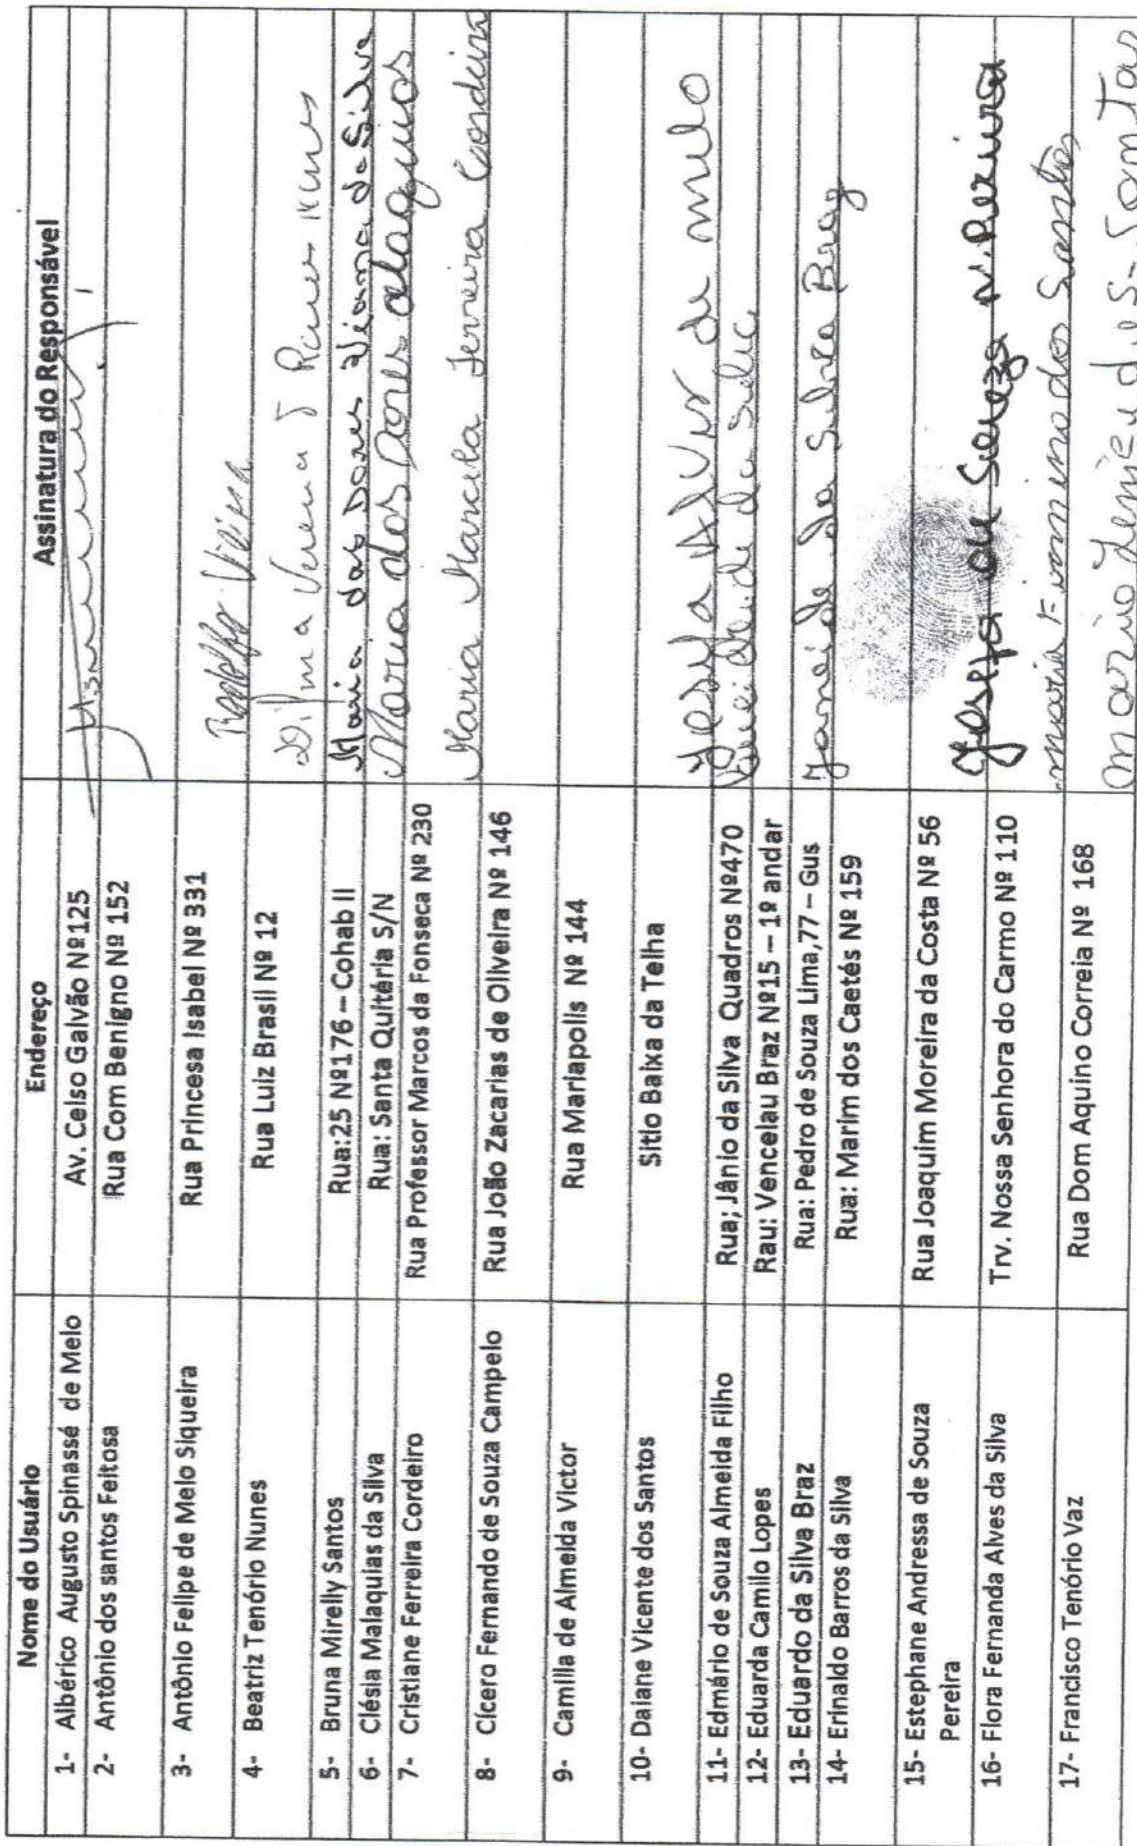 Nome do Usuário Endereço Assinatura do Responsável
1- Albérico Augusto Spinassé de Melo Av. Celso Galvão Nº125
2- Antônio dos santos Feitosa Rua Com Benigno Nº 152
3- Antônio Felipe de Melo Siqueira Rua Princesa Isabel Nº 331 Vieira
4- Beatriz Tenório Nunes Rua Luiz Brasil Nº 12
5- Bruna Mirelly Santos Rua:25 Nº176 – Cohab II Maria das Dores Viana da Silva
6- Clésia Malaquias da Silva Rua: Santa Quitéria S/N Maria das Dores alaquias
7- Cristiane Ferreira Cordeiro Rua Professor Marcos da Fonseca Nº 230 Maria Marcela Ferreira Cordeiro
8- Cícero Fernando de Souza Campelo Rua João Zacarias de Oliveira Nº 146
9- Camilla de Almeida Victor Rua Mariapolis Nº 144
10- Daiane Vicente dos Santos Sitio Baixa da Telha
11- Edmário de Souza Almeida Filho Rua; Jânio da Silva Quadros Nº470 de melo
12- Eduarda Camilo Lopes Rau: Vencelau Braz Nº15 – 1º andar
13- Eduardo da Silva Braz Rua: Pedro de Souza Lima,77 – Gus
14- Erinaldo Barros da Silva Rua: Marim dos Caetés Nº 159 Janeide da Silva Braz
15- Estephane Andressa de Souza
Pereira Rua Joaquim Moreira da Costa Nº 56
16- Flora Fernanda Alves da Silva Trv. Nossa Senhora do Carmo Nº 110 Josefa de Souza N. Pereira
maria dos Santos
17- Francisco Tenório Vaz Rua Dom Aquino Correia Nº 168